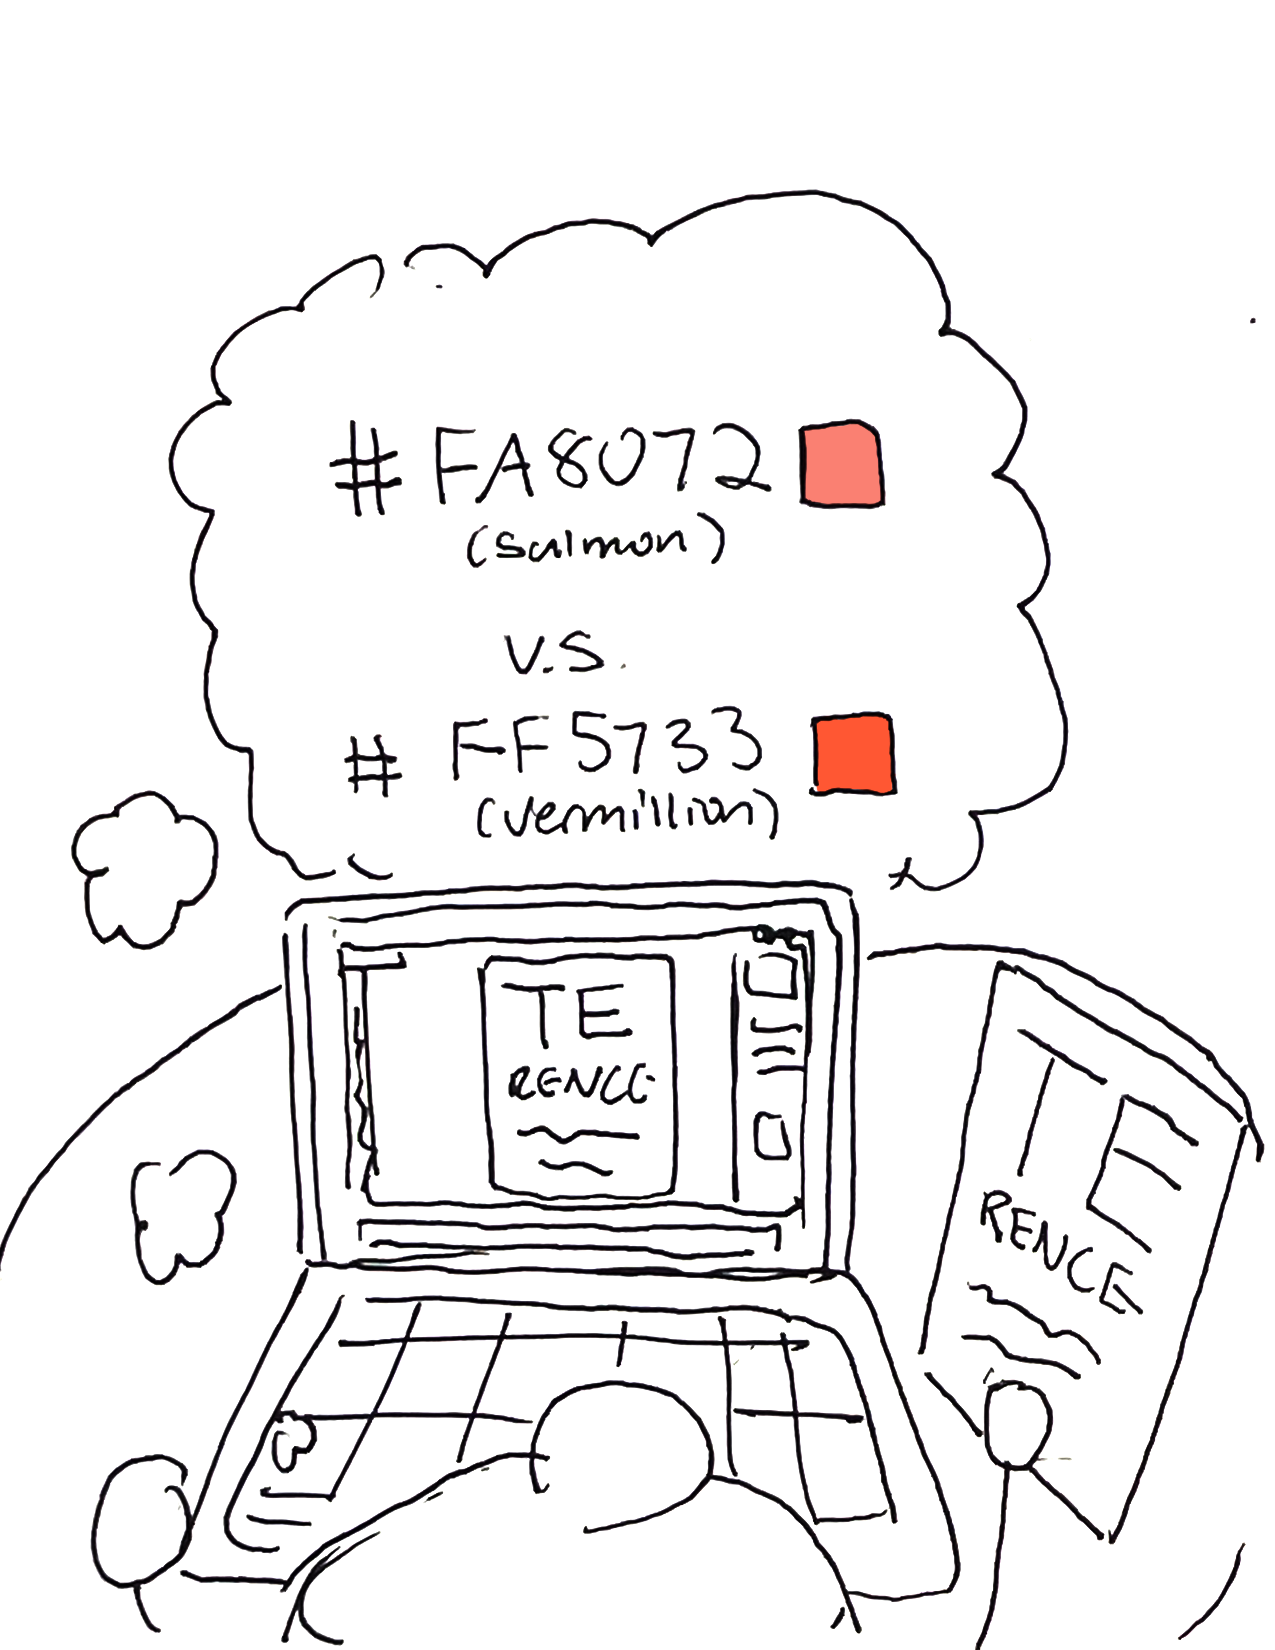 #FA8072
(salmon)
V.S.
# FF5733
(vermillion)
TE
RENCE
TE
RENCE